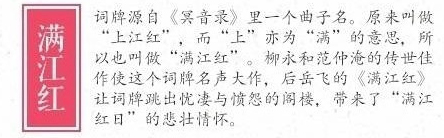 满江红
词牌源自《冥音录》里一个曲子名。原来叫做
“上江红”，而“上”亦为“满”的意思，所
以也叫做“满江红”。柳永和范仲淹的传世佳
作使这个词牌名声大作，后岳飞的《满江红》
让词牌跳出忧凄与愤怨的阁楼，带来了“满江
红日”的悲壮情怀。